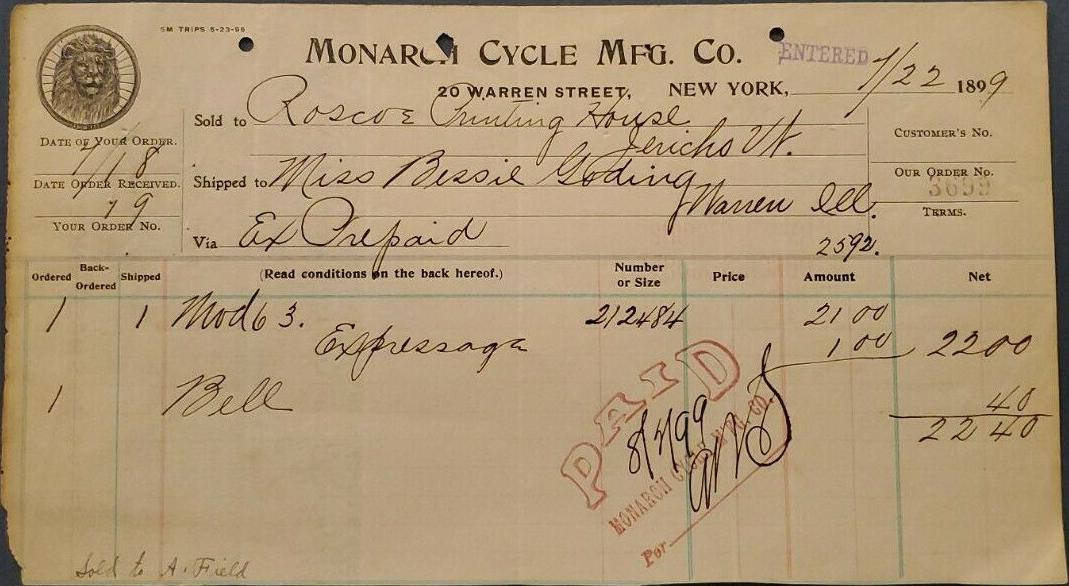 5M TRIPS 5-23-99
MONARCH CYCLE MFG. CO.
ENTERED
20 WARREN STREET, NEW YORK, 7/22 1899
Sold to Roscoe Printing House
Jericho Vt.
DATE OF YOUR ORDER.
7/18
DATE ORDER RECEIVED.
19
YOUR ORDER NO.
Shipped to Miss Bessie Goding
Warren Ill.
Via Ex Prepaid
2592.
CUSTOMER'S NO.
OUR ORDER NO.
3699
TERMS.
Ordered Back-Ordered Shipped (Read conditions on the back hereof.) Number or Size Price Amount Net
1 1 Mod 63. 212484 21 00
Expressage 1 00 22 00
1 Bell 40
22 40
PAID
8/7/99
MONARCH CYCLE MFG. CO.
Por
Sold to A. Field